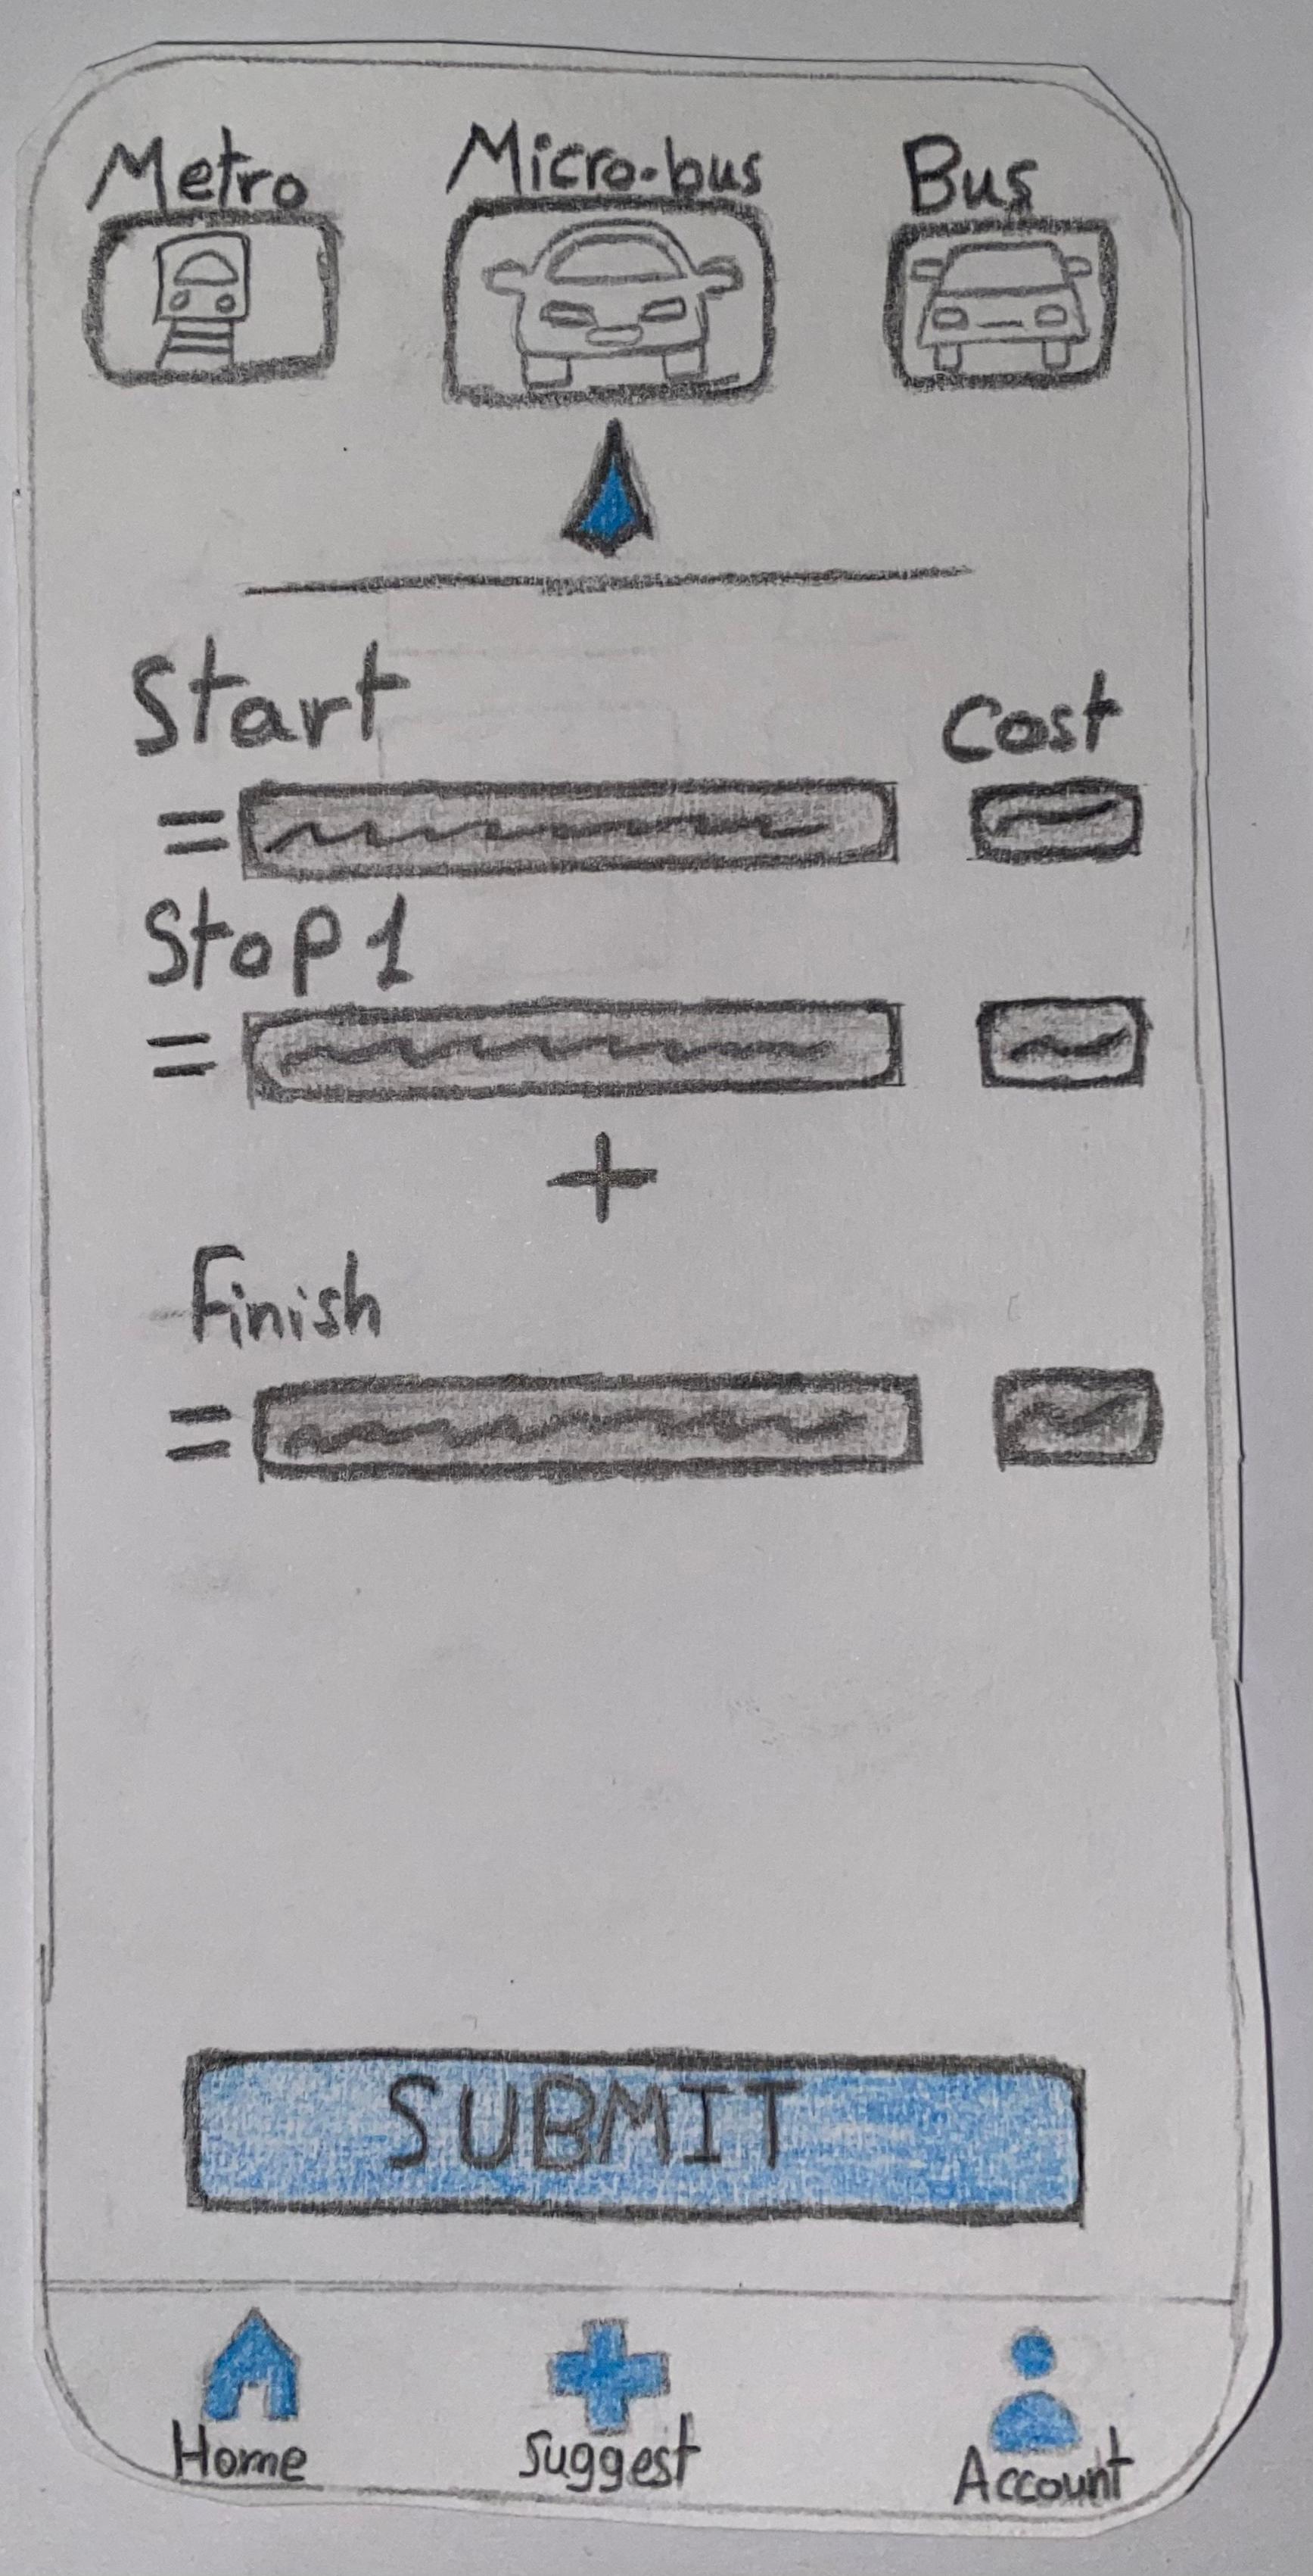 Metro Micro-bus Bus
Start Cost
Stop 1
Finish
SUBMIT
Home Suggest Account